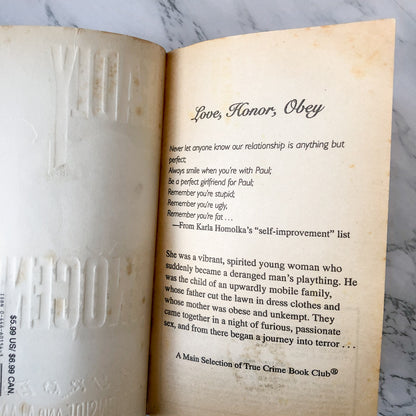 Love, Honor, Obey
Never let anyone know our relationship is anything but
perfect;
Always smile when you're with Paul;
Be a perfect girlfriend for Paul;
Remember you're stupid;
Remember you're ugly,
Remember you're fat . . .
—From Karla Homolka's "self-improvement" list
She was a vibrant, spirited young woman who
suddenly became a deranged man's plaything. He
was the child of an upwardly mobile family,
whose father cut the lawn in dress clothes and
whose mother was obese and unkempt. They
came together in a night of furious, passionate
sex, and from there began a journey into terror . . .
A Main Selection of True Crime Book Club®
$5.99 US/ $6.99 CAN.